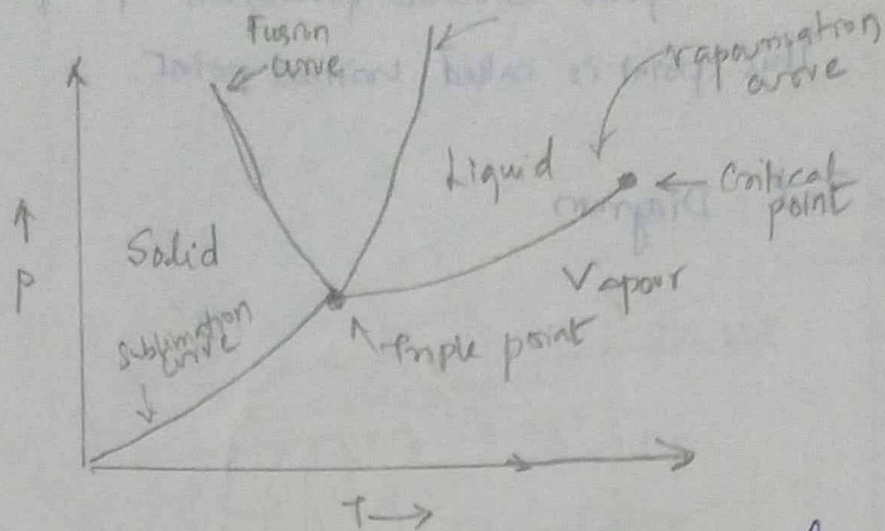 Fusion
curve
vapourisation
curve
Liquid
Critical
point
Solid
Vapour
P
sublimation
curve
Triple point
T